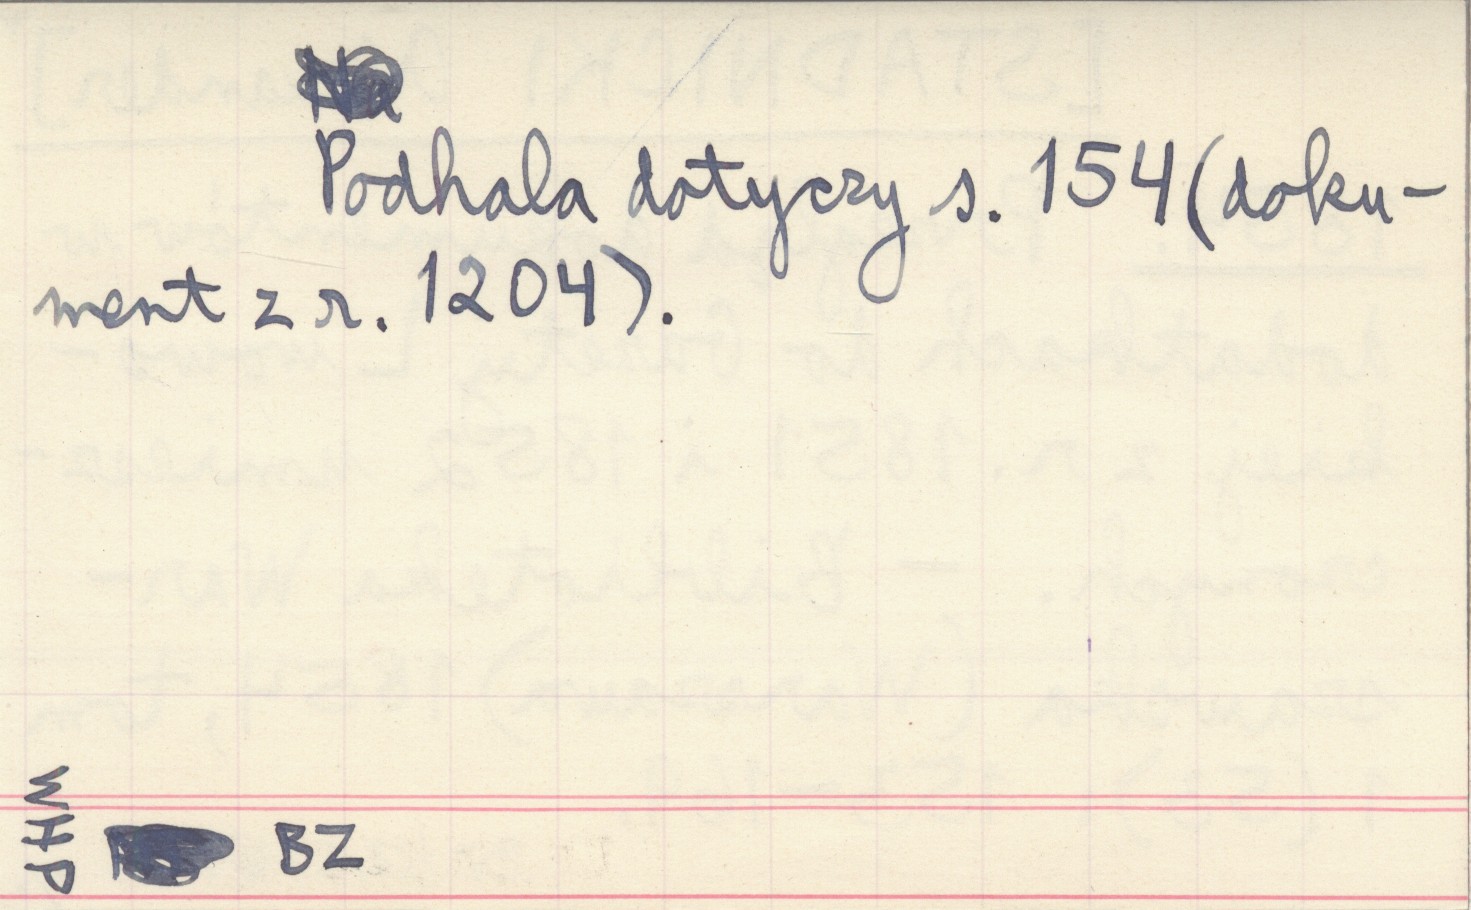 Podhala dotyczy s. 154 (doku-
ment z r. 1204).
WHP
BZ